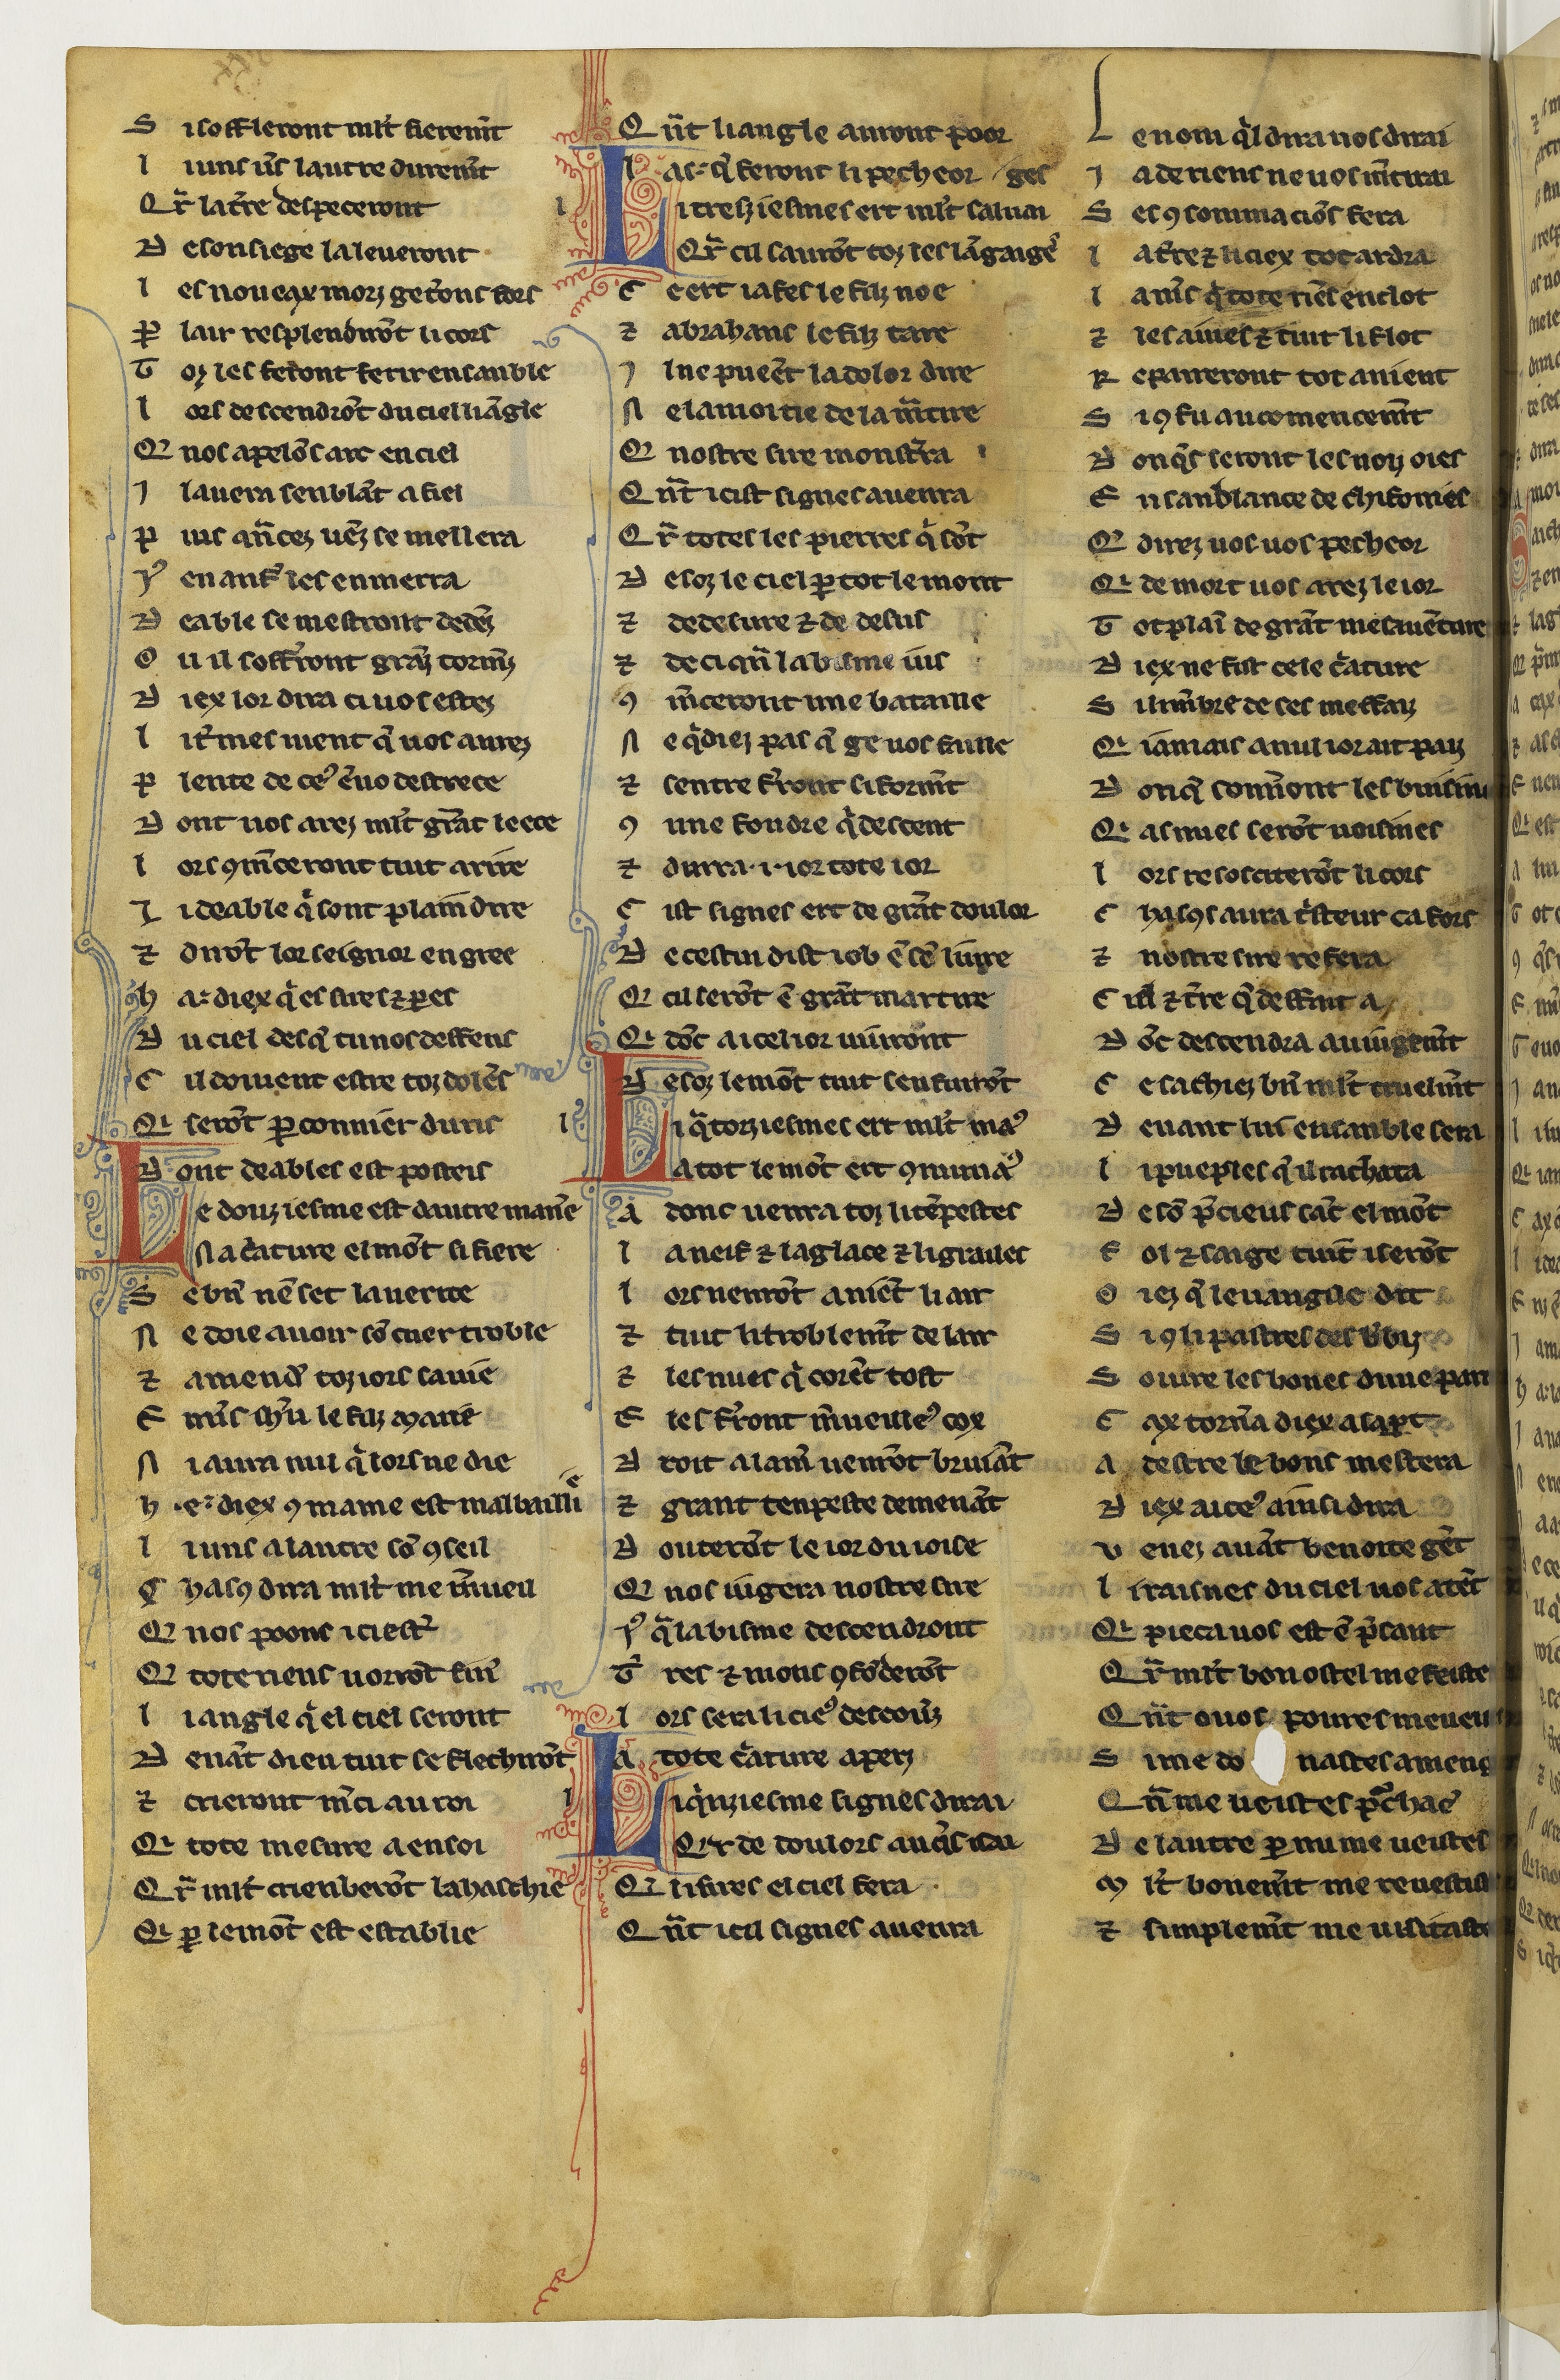 S i soffleront mlt̃ fierem̃t
l i uns ũs lautre durem̃t
Qr̃ la tr̃e despeceront
D e son siege la leueront
l es noueax morz get̃ons fors
p̲ lair resplendirõt li cors
T oz les feront ferir ensanble
l ors descendrõt du ciel li ãgle
Q̃ nos apelõs arc en ciel
I l aura senblãt a fiel
p ius qñ cez uẽz se mellera
I᾽ en anf᾽ les enmerra
D eable se mestront dedẽz
O u il soffront grãz tormẽz
D iex lor dira ci uos estez
l it̃ mes uient q̃ uos aurez
p lente de ce᾽ ẽ uo destrece
D ont uos arez mlt̃ grãt leece
l ors ꝯm̃ceront tuit a rire
L i deable q̃ sont plain dire
⁊ dirõt lor seignor en gres
h a diex q̃ es sires ⁊ p̲es
D u ciel desq̃ tu nos deffens
C il doiuent estre toz dolẽs
Q̃ serõt p̲conniẽr duns
D ont deables est posteis
L e douziesme est dautre manr̃e
N a c̃ature el mõt si fiere
S e bñ nẽ set la uerite
N e doie auoir sõ cuer troble
⁊ amend᾽ toz iors sa uie
F mis ih̃u le filz marie
N i aura nul q̃ lors ne die
h e diex ꝯ mame est malbaillie
l i uns a lautre sõ ꝯseil
C has ꝯ dira mlt̃ me m̃ueil
Q̃ nos poons ici est᾽
Q̃ tote riens uorrõt fui᾽
l i angle q̃ el ciel seront
D euãt dieu tuit se flechirõt
⁊ crieront m̃ci au roi
Q̃ tote mesure a en soi
Qr̃ mlt̃ crienberõt la haschie
Q̃ p̲ le mõt est establie
Q ñt li angle auront poor
l as q̃ feront li pecheor
L i tresziesmes ert mlt̃ saluaiges
Qr̃ cil saurõt toz les lãgaige᾽
C e ert iafes le filz noe
⁊ abrahans le filz tare
I l ne pueẽt la dolor dire
N e la moitie de la m̃tire
Q̃ nostre sire monstr̃a
Q ñt icist signes auenra
Q r̃ totes les pierres q̃ sõt
D esoz le ciel p̲ tot le mont
⁊ dedesure ⁊ de desus
⁊ de ci qñ labisme ius
ꝯ m̃ceront une bataille
N e q̃diez pas q̃ ge uos faille
⁊ sentre fr̃ront si form̃t
ꝯ une foudre q̃ descent
⁊ durra .i. ior tote ior
C ist signes ert de grãt doulor
D e cestui dist iob ẽ sẽ liure
Q̃ cil serõt ẽ grãt martire
Q̃ dõc a icel ior uiuront
D esoz le mõt tuit senfuirõt
L i q̃torziesmes ert mlt̃ ma᾽
A tot le mõt ert ꝯmuna᾽
A donc uenra toz li tẽpestes
l a neif ⁊ la glace ⁊ li grailles
l ors uenrõt a niẽt li air
⁊ tuit li troblem̃t de lair
⁊ les nues q̃ corẽt tost
F les fr̃ont m̃ueille᾽ cox
D roit a lam̃ uenrõt bruiãt
⁊ grant tenpeste demenãt
D outerõt le ior du ioise
Q̃ nos iugera nostre sire
I᾽ q̃ labisme descendront
T res ⁊ mons ꝯfõderõt
l ors sera li cie᾽ descouũz
A tote c̃ature aperz
L i q̃nziesme signes dirai
Qr̃ de doulors
Q̃ li fires el ciel fera
Q ñt icil signes auenra
L e nom q̃l dira uos dirai
I a de riens ne uos m̃tirai
S es ꝯsommaciõs fera
l a tr̃e ⁊ li ciex tot ardra
l a m̃s q̃ tote riẽs enclot
⁊ les aiues ⁊ tuit li flot
R epaireront tot a nient
S i ꝯ fu au comencem̃t
D onq̃s seront les uoiz oies
E n sanblance de chifonies
Q̃ direz uos uos pecheor
Q̃ de mort uos arez le ior
T ot plaĩ de grãt mesauẽture
D iex ne fist cele c̃ature
S il mẽbre de ses meffaiz
Q̃ iamais a nul ior ait paiz
D onq̃ sonr̃ont les buisin
Q̃ as nues serõt uoisines
l ors resosciterõt li cors
C has ꝯ aura t̃steur ca fors
⁊ nostre sire refera
C iel ⁊ tr̃e q̃ deffait a
D õc descendra au iugem̃t
C e sachiez bñ mlt̃ cruelm̃t
D euant lui ensanble sera
l i pueples q̃ il rachata
D e sõ p̃cieus sãc el mõt
F ol ⁊ saige tuit iserõt
O iez q̃ leuangile dit
S i ꝯ li pastres des b̃biz
S ouire les bones dune part
C ax torña diex a sa p̲t
A destre le bons mestera
D iex a ice᾽ ainsi dira
V enez auãt benoite gẽt
l i raisnes du ciel uos atẽt
Q̃ pieca uos est ẽ p̃sant
Q r̃ mlt̃ bon ostel me feiste
Q ñt o uos poures me ueu
S i me donastes a meng
Q ñ me ueistes p̃chac᾽
D e lautre p̲ nu me ueistes
M lt̃ bonem̃t me reuestis
⁊ simplem̃t me uisitast